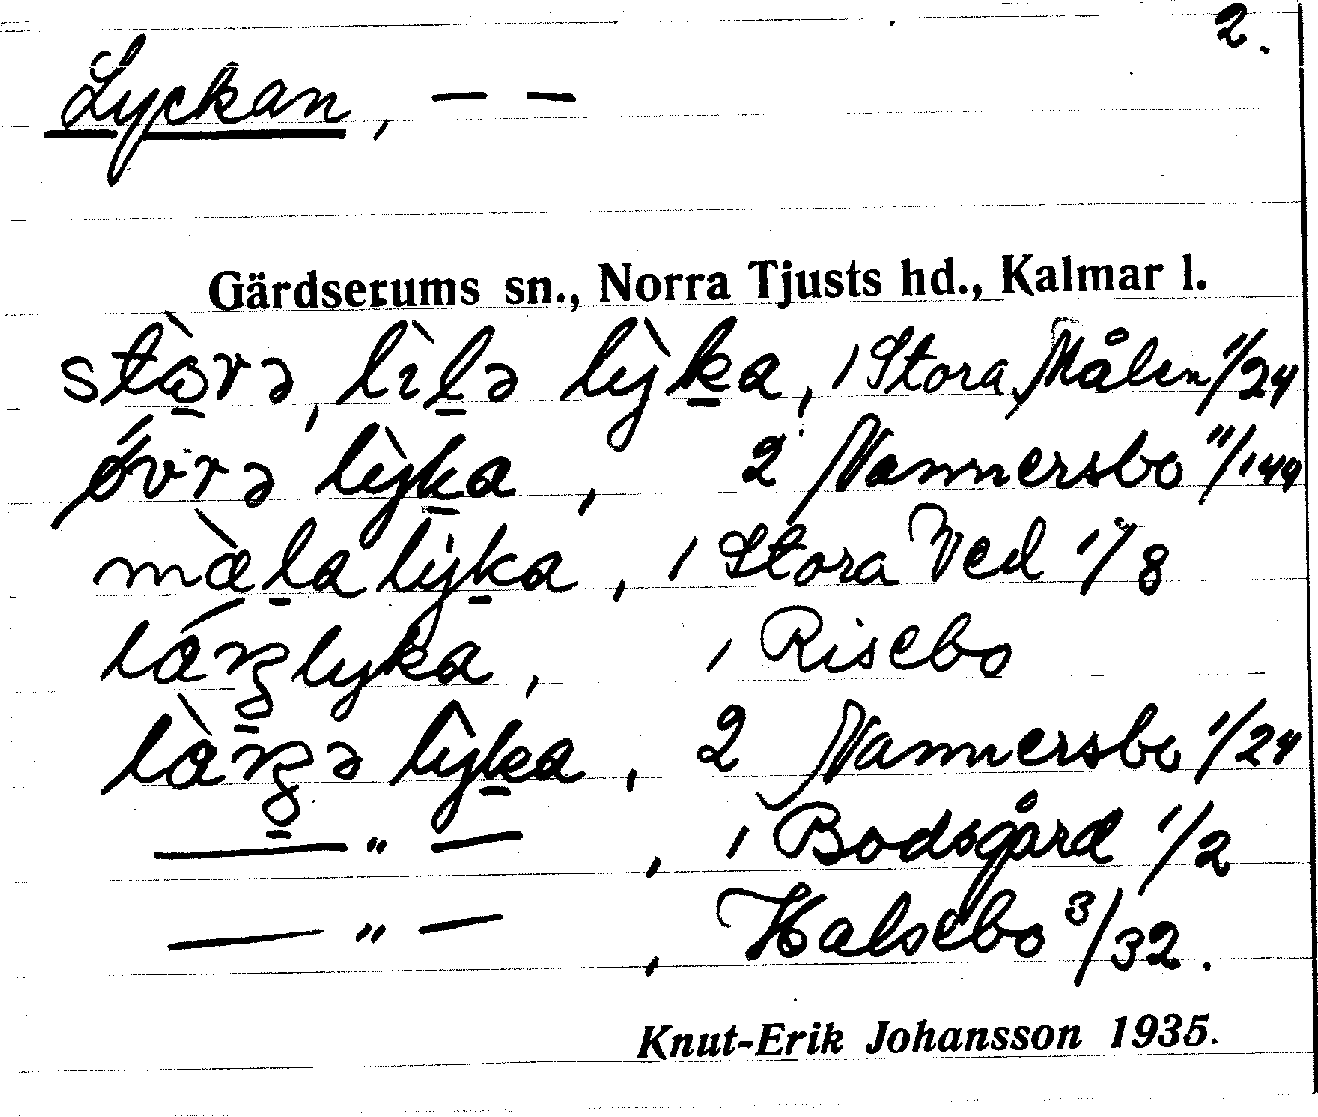 2.
Lyckan, — —
Gärdserums sn., Norra Tjusts hd., Kalmar l.
stòrə, lìlə lỳka, 1 Stora Målen 1/24
ö́vrə lỳka, 2 Nannersbo 11/144
mæ̀la lỳka, 1 Stora Ved 17/8
láŋlyka, 1 Risebo
làŋə lỳka, 2 Nannersbo 1/24
— " — , 1 Bodsgård 1/2
— " — , Halsebo 3/32.
Knut-Erik Johansson 1935.